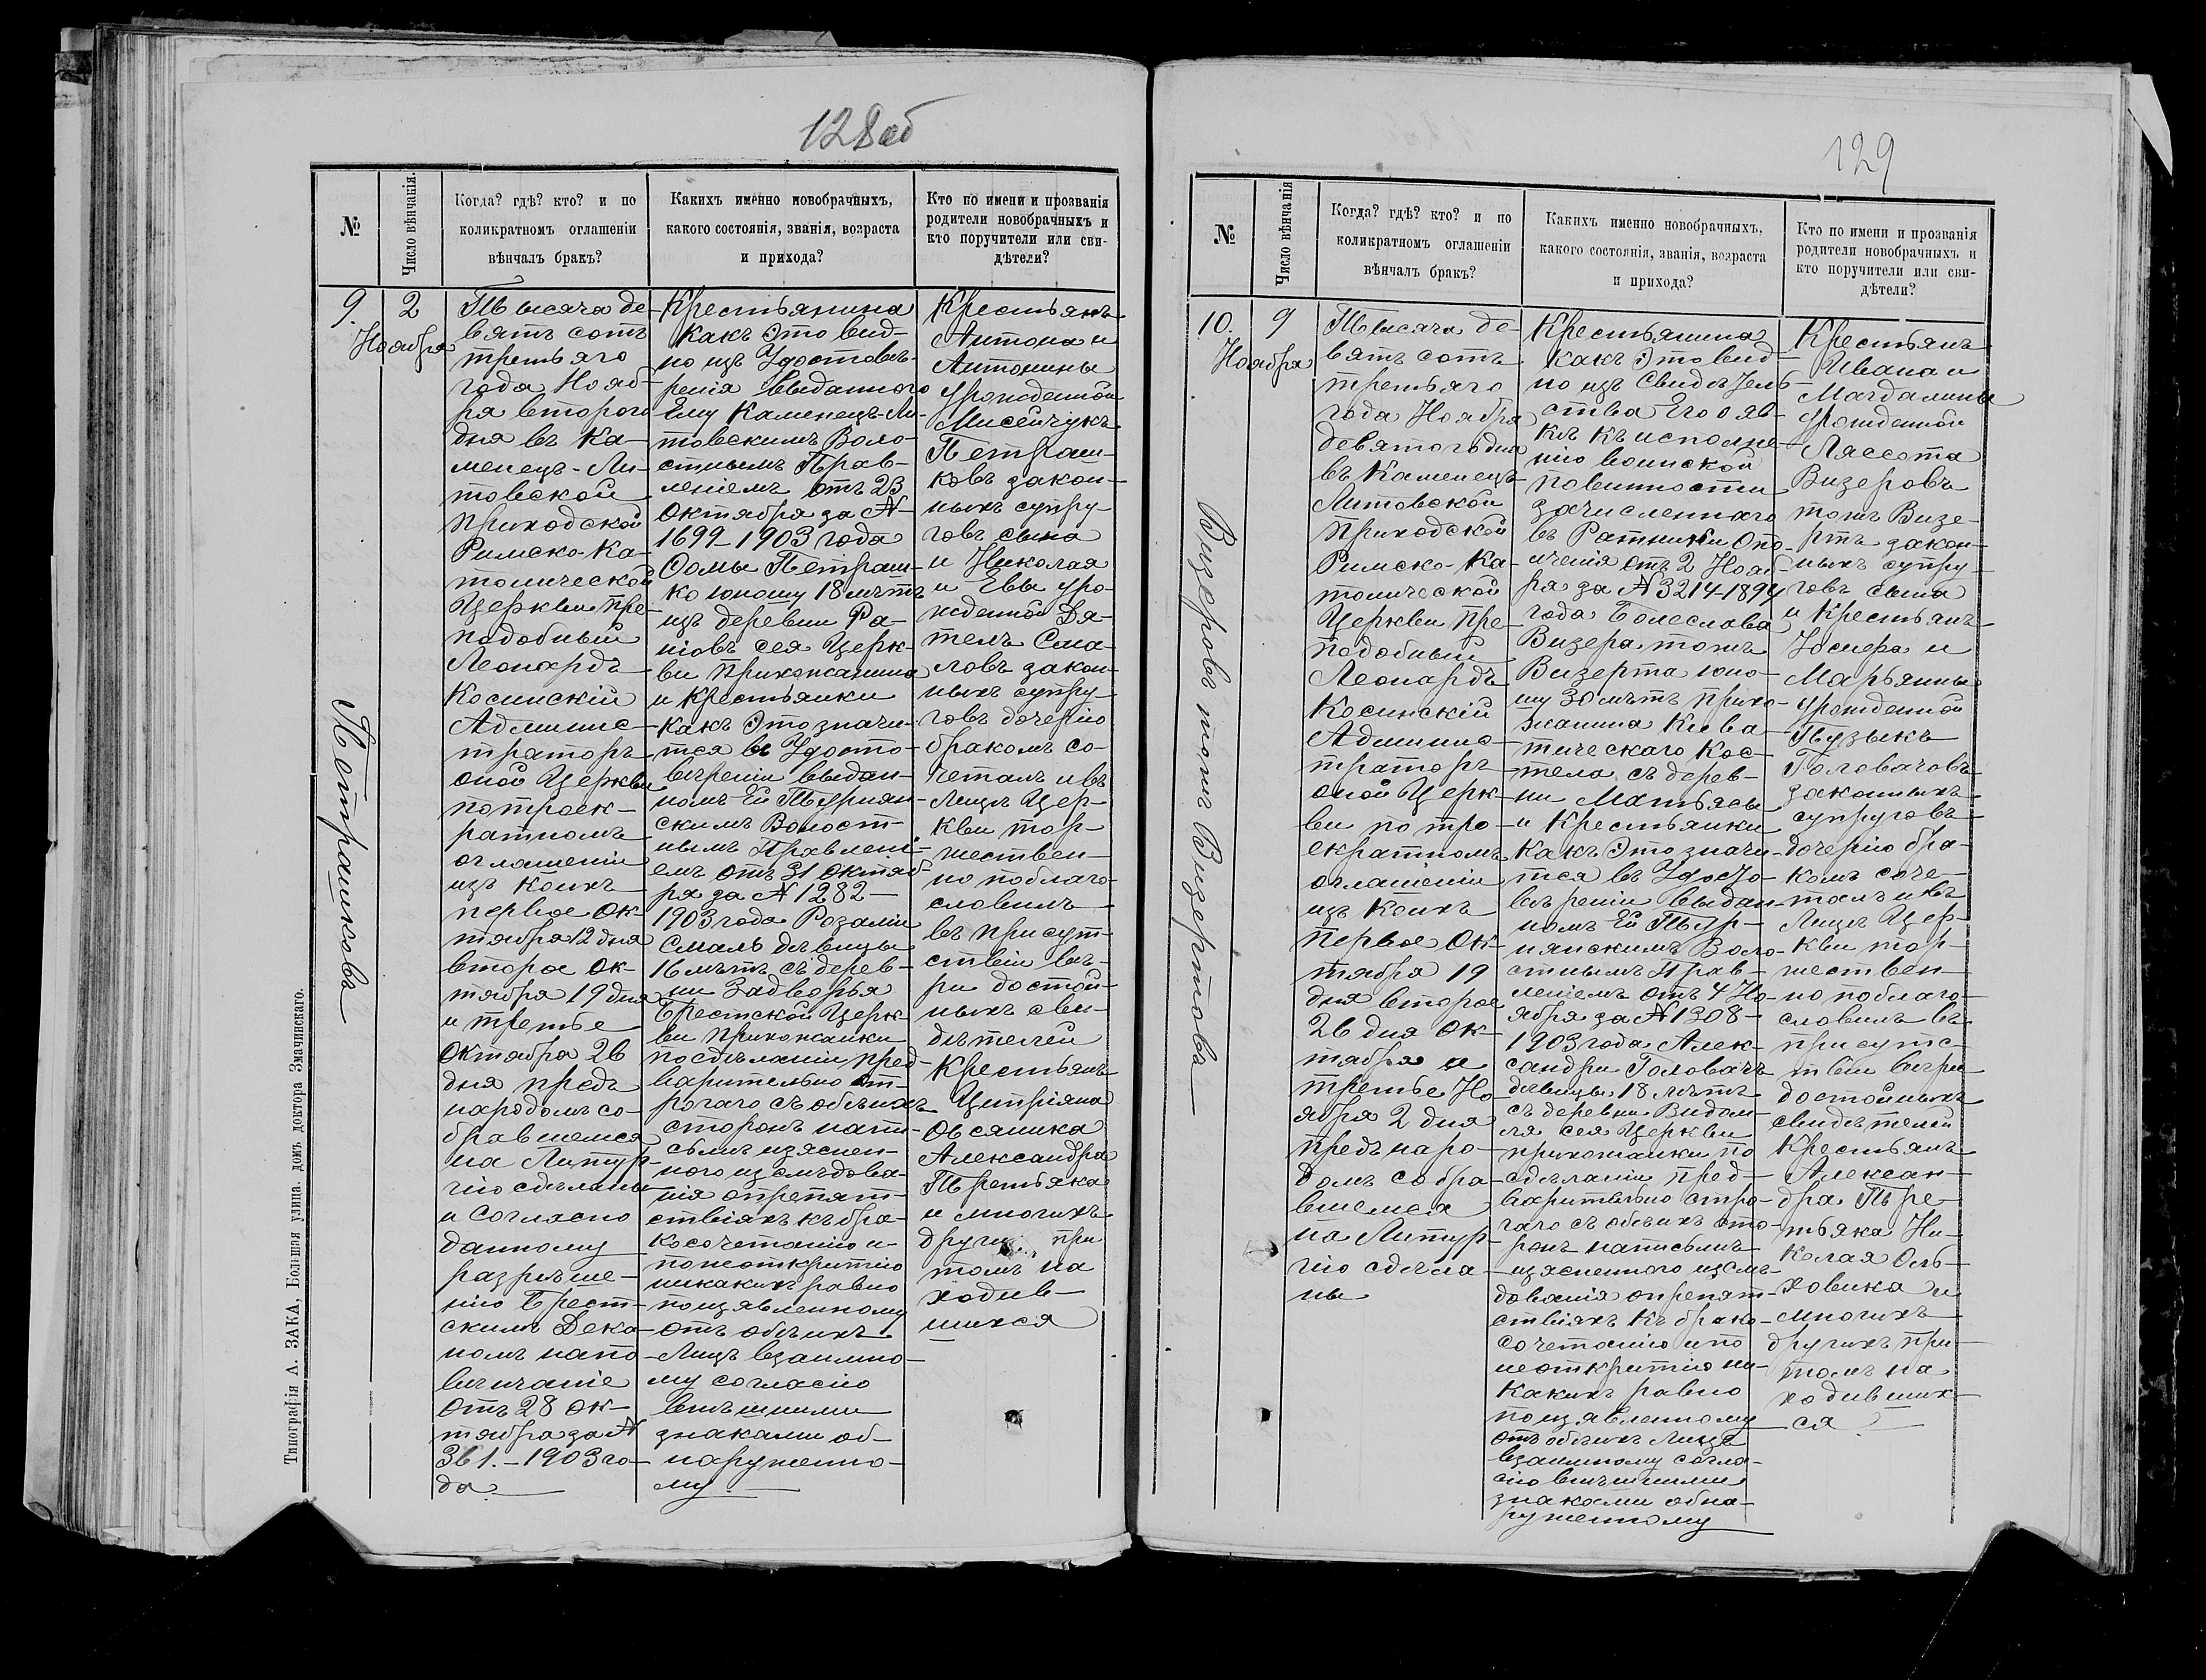 128об
№
Число вѣнчанія.
Когда? гдѣ? кто? и по
коликратномъ оглашеніи
вѣнчалъ бракъ?
Какихъ именно новобрачныхъ,
какого состоянія, званія, возраста
и прихода?
Кто по имени и прозванія
родители новобрачныхъ и
кто поручители или сви-
дѣтели?
9.
2
Ноября
Петрашковъ
Тысяча де-
вять сотъ
третьяго
года Нояб-
ря второго
дня въ Ка-
менецъ-Ли-
товской
приходской
Римско-Ка-
толической
Церкви Пре-
подобный
Леонардъ
Косинскій
Админис-
траторъ
оной Церкви
по троек-
ратномъ
оглашеніи
изъ коихъ
первое Ок-
тября 12 дня
второе Ок-
тября 19 дня
и третье
Октября 26
дня предъ
народомъ со-
бравшемся
на Литур-
гію сдѣланы
и согласно
данному
разрѣше-
нію Брест-
скимъ Дека-
номъ на по-
вѣнчаніе
отъ 28 Ок-
тября за №
361.-1903 го-
да
Крестьянина
какъ это вид-
но изъ Удостовѣ-
ренія выданного
Ему Каменецъ-Ли-
товскимъ Воло-
стнымъ Прав-
леніемъ отъ 23
Октября за №
1699-1903 года
Ѳомы Петраш-
ко юношу 18 лѣтъ
изъ деревни Ра-
сновъ сея Церк-
ви прихожанина
и Крестьянки
какъ это значи-
тся въ Удосто-
вѣреніи выдан-
номъ Ей Турнян-
скимъ Волост-
нымъ Правлені-
емъ отъ 31 Октяб-
ря за № 1282-
1903 года Розаліи
Смаль дѣвицы
16 лѣтъ съ дерев-
ни Задворья
Брестской Церк-
ви прихожанки
по сдѣланіи пред-
варительно ст-
рогаго съ обѣихъ
сторонъ напи-
сьмѣ изяснен-
ного изслѣдова-
нія о препят-
ствіяхъ къ бра-
косочетанію и
по неоткрытію
никакихъ равно
по изявленному
отъ обѣихъ
Лицъ взаимно-
му согласію
внѣшними
знаками об-
наруженно-
му
Крестьянъ
Антона и
Антонины
урожденной
Мисейчукъ
Петраш-
ковъ закон-
ныхъ супру-
говъ сына
и Николая
и Евы уро-
жденной Дя-
телъ Сма-
ловъ закон-
ныхъ супру-
говъ дочерію
бракомъ со-
четалъ и въ
Лицѣ Цер-
кви тор-
жествен-
но поблаго-
словилъ
въ присут-
ствіи вѣ-
ри достой-
ныхъ сви-
дѣтелей
Крестьянъ
Ципріяна
Овсяника
Александра
Третьяка
и многихъ
при
томъ на
ходив-
шихся
Типографія А. ЗАКА, Большая улица. домъ доктора Змачинскаго.
129
№
Число вѣнчанія
Когда? гдѣ? кто? и по
коликратномъ оглашеніи
вѣнчалъ бракъ?
Какихъ именно новобрачныхъ,
какого состоянія, званія, возраста
и прихода?
Кто по имени и прозванія
родители новобрачныхъ и
кто поручители или сви-
дѣтели?
10.
9
Ноября
Визеровъ тожъ Визертовъ
Тысяча де-
вять сотъ
третьяго
года Ноября
девятого дня
въ Каменецъ
Литовской
приходской
Римско-Ка-
толической
Церкви Пре-
подобный
Леонардъ
Косинскій
Админис-
траторъ
оной Церк-
ви по тро-
екратномъ
оглашеніи
изъ коихъ
первое Ок-
тября 19
дня второе
26 дня Ок-
тября и
третье Но-
ября 2 дня
предъ наро-
домъ собра-
вшемся
на Литур-
гію сдѣла-
ны
Крестьянина
какъ это вид-
но изъ свидѣтель-
ства Его о яв-
кѣ къ исполне-
нію воинской
повинности
зачисленнаго
въ Ратники Опо-
лченія отъ 2 Нояб-
ря за № 3214-1894
года Болеслава
Визера тожъ
Визерта юно-
шу 30 лѣтъ прихо-
жанина Кива-
тическаго Кос-
тела съ дерев-
ни Матясы
и Крестьянки
какъ это значи-
тся въ Удосто-
вѣреніи выдан-
номъ Ей Тур-
нянскимъ Воло-
стнымъ Прав-
леніемъ отъ 4 Но-
ября за № 1308-
1903 года Алек-
сандри Головачъ
дѣвицы 18 лѣтъ
съ деревни Видом-
ля сея Церкви
прихожанки по
сдѣланіи пред-
варительно стро-
гаго съ обѣихъ сто-
ронъ написьмѣ
изясненного изслѣ-
дованія о препят-
ствіяхъ къ брако-
сочетанію и по
неоткрытію ни-
какихъ равно
по изявленному
отъ обѣихъ Лицъ
взаимному согла-
сію внѣшними
знаками обна-
руженному
Крестьянъ
Ивана и
Магдалины
урожденной
Лясота
Визеровъ
тожъ Визе-
ртъ закон-
ныхъ супру-
говъ сына
и Крестьянъ
Юсифа и
Марьянны
урожденной
Пузыкъ
Головачовъ
законныхъ
супруговъ
дочерію бра-
комъ соче-
талъ и въ
Лицѣ Цер-
кви тор-
жествен-
но поблаго-
словилъ въ
присутс-
твіи вѣри
достойныхъ
свидѣтелей
Крестьянъ
Алексан-
дра Тре-
тьяка Ни-
колая Оль-
ховика и
многихъ
другихъ при
томъ на
ходивших-
ся